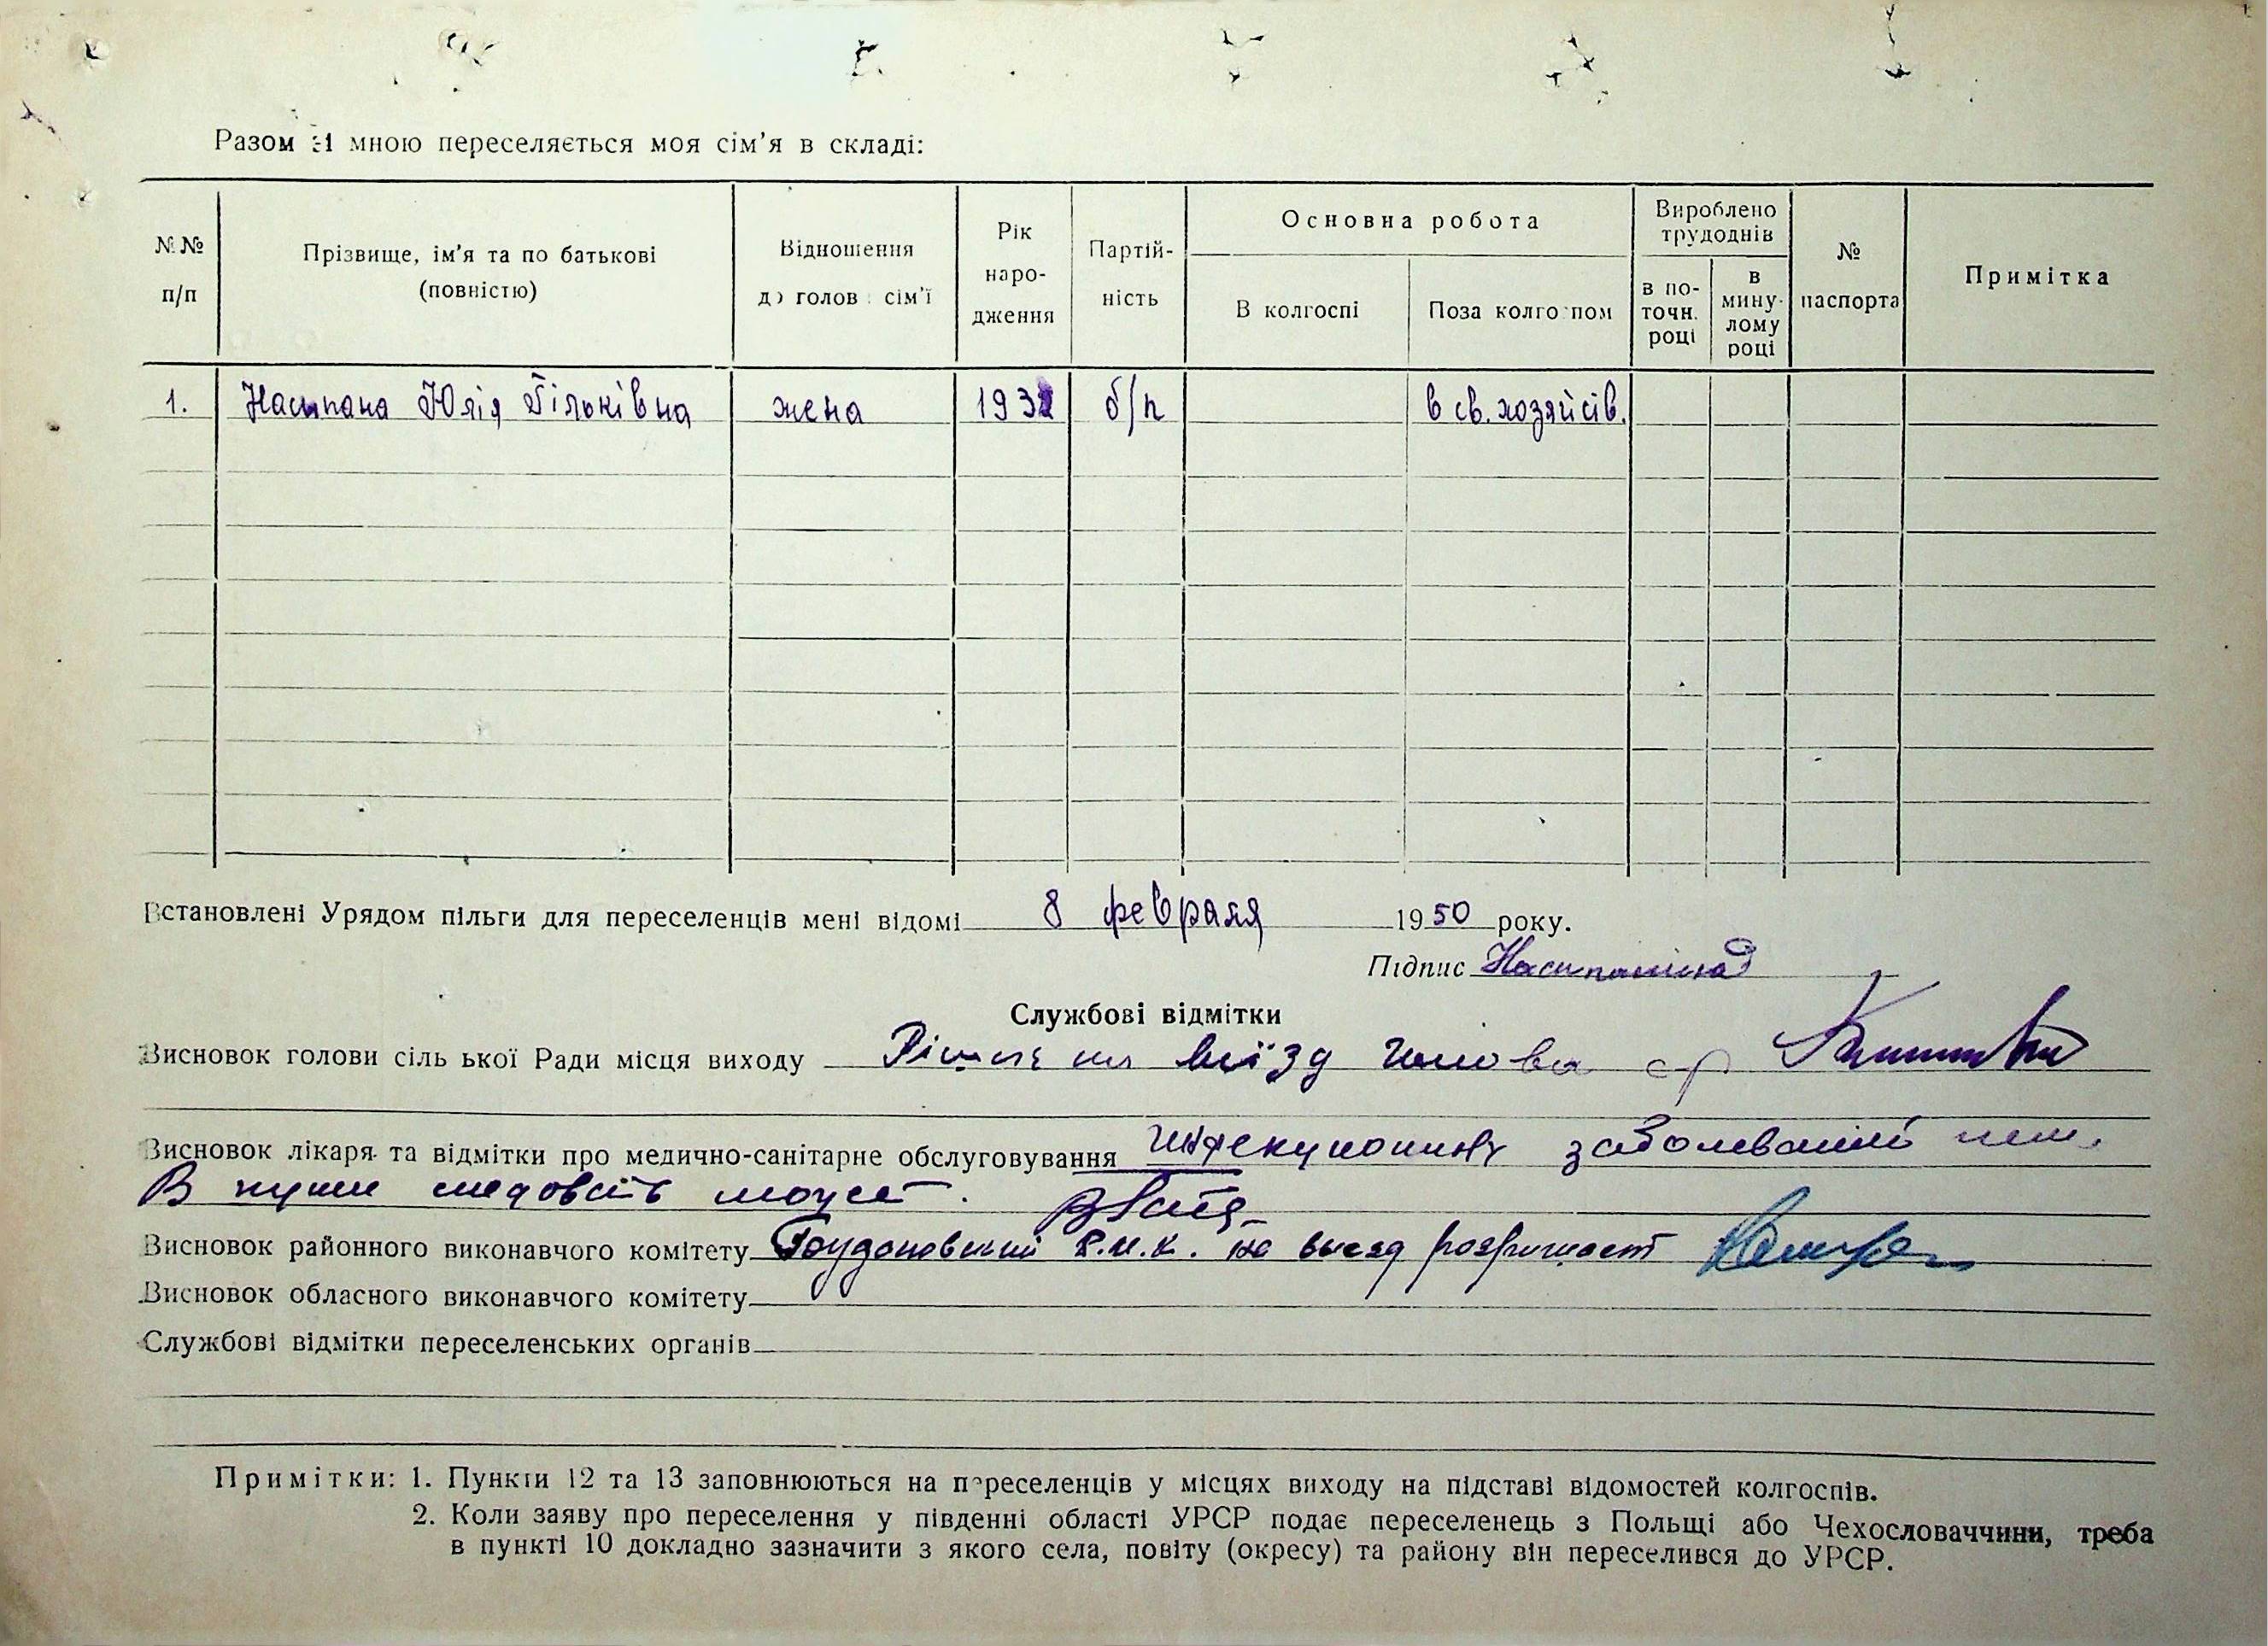 Разом зі мною переселяється моя сім'я в складі:
№№ п/п
Прізвище, ім'я та по батькові (повністю)
Відношення до голови сім'ї
Рік народження
Партій-
ність
Основна робота
В колгоспі
Поза колгоспом
Вироблено трудоднів
в по-
точн.
році
в
мину-
лому
році
№ паспорта
Примітка
1. Насипана Юлія Тільківна жена 1932 б/п в св. хозяйстів.
Встановлені Урядом пільги для переселенців мені відомі 8 февраля 1950 року.
Підпис
Службові відмітки
Висновок голови сільської Ради місця виходу на виїзд голова с/р
Висновок лікаря та відмітки про медично-санітарне обслуговування Инфекционных заболеваний нет.
В пути следовать может.
Висновок районного виконавчого комітету Р.И.К. на выезд
Висновок обласного виконавчого комітету
Службові відмітки переселенських органів
Примітки: 1. Пункти 12 та 13 заповнюються на переселенців у місцях виходу на підставі відомостей колгоспів.
2. Коли заяву про переселення у південні області УРСР подає переселенець з Польщі або Чехословаччини, треба
в пункті 10 докладно зазначити з якого села, повіту (окресу) та району він переселився до УРСР.